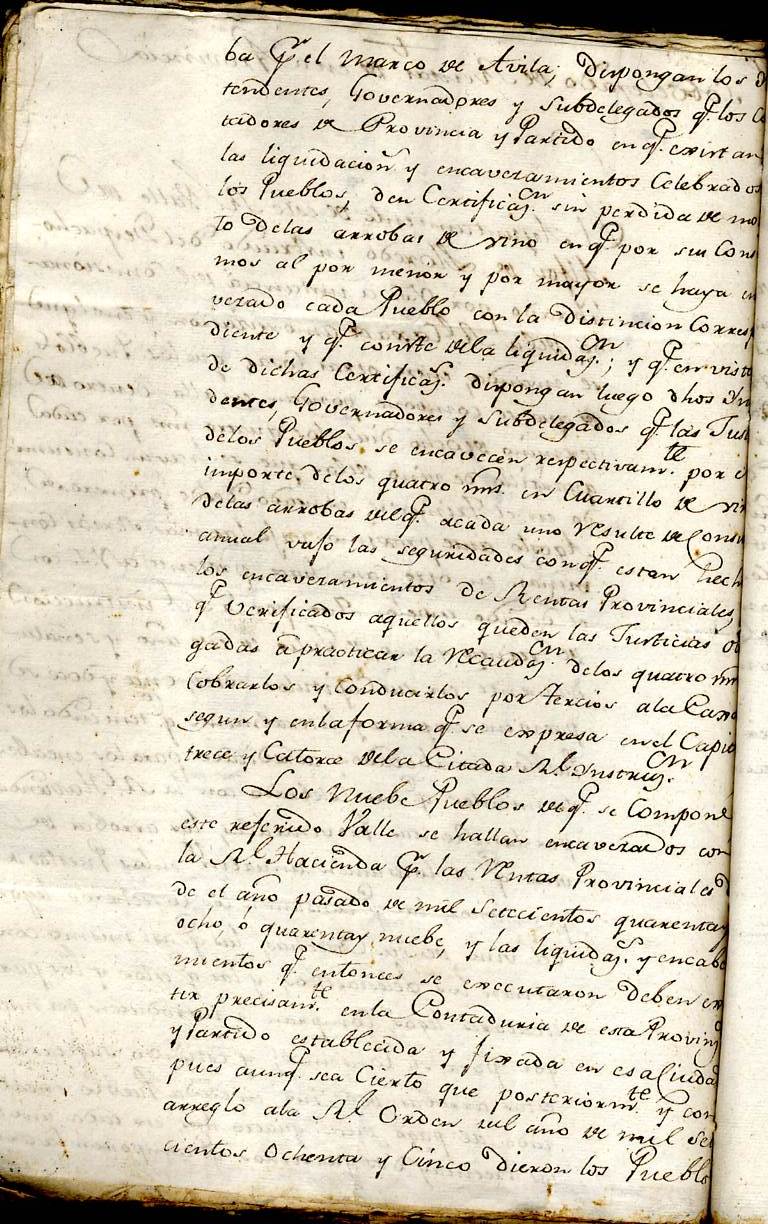 ba pr. el Marco de Avila; Dispongan los Yn
tendentes, Governadores y Subdelegados q.e los Co
tadores de Provincia y Partido en q.e existan
las liquidacion.s y encavezamientos Celebrados
los Pueblos, den Certificaz.on sin perdida de mo
to delas arrobas de vino en q.e por sus Cons
mos al por menor y por mayor se haya en
vezado cada Pueblo con la Distincion Corresp
diente y q.e conste dela liquidaz.on; y q.e en vista
de dichas Certificaz.s dispongan luego dhos Yn
dentes, Governadores y Subdelegados q.e las Just
delos Pueblos se encavecen respectivam.te por el
importe delos quatro mrs. en Cuartillo de vin
delas arrobas del q.e acada uno resulte de Consu
anual vajo las seguridades con q.e estan hech
los encavezamientos de Rentas Provinciales,
q.e Verificados aquellos queden las Justicias ob
gadas à practicar la recaudaz.on delos quatro mrs
Cobrarlos y conducirlos por tercios ala Caxa
segun y enlaforma q.e se expresa en el Capit
trece y Catorce dela Citada R.l Ynstruz.on
Los Nuebe Pueblos de q.e se Compone
este referido Valle se hallan encavezados con
la R.l Hacienda pr. las Rentas Provinciales d
de el año pasado de mil Setecientos quarentay
ocho, ó quarentay nuebe, y las liquidaz.s y encabe
mientos q.e entonces se executaron deben ex
tir precisam.te enla Contaduria de esta Provinz
y Partido establecida y fixada en esa Ciuda
pues aunq.e sea Cierto que posteriorm.te y con
arreglo ala R.l Orden del año de mil Set
cientos Ochenta y Cinco Dieron los Pueblo